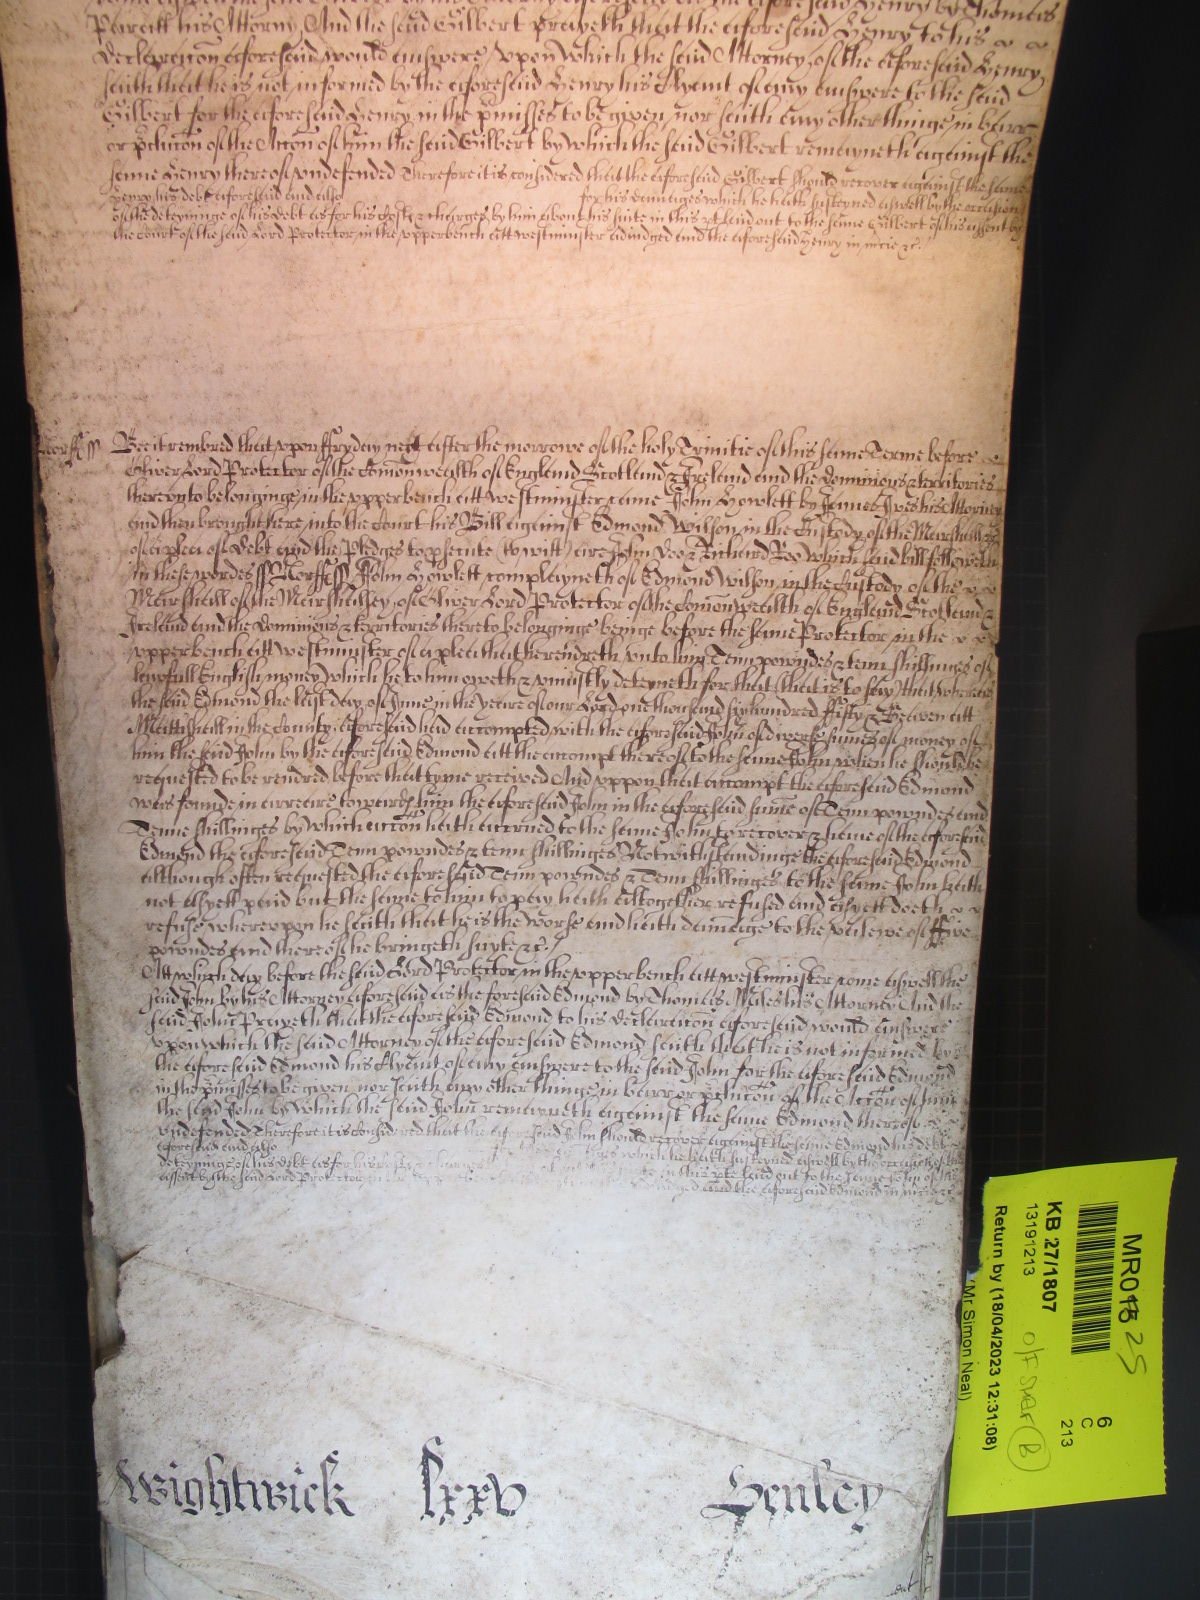 Pursett his Attorny And the said Gilbert Prayeth that the aforesaid Henry to his
declaracon aforesaid would answere, vpon which the said Attorney of the aforesaid Henry
saith that he is not informed by the aforesaid Henry his Clyent of any answere to the said
Gilbert for the aforesaid Henry in the pmisses to be given, nor saith any other thinge in barr
or pclucon of the Accon of him the said Gilbert by which the said Gilbert remayneth against the
same Henry thereof vndefended Therefore it is considered that the aforesaid Gilbert should recover against the same
Henry his debt aforesaid and also for his damages which he hath susteyned aswell by the occasion
of the deteyninge of his debt as for his Costs & charges by him about his suite in this pt laid out to the same Gilbert of his assent by
the Court of the said Lord Protector in the vpperbench att westminster adiudged and the aforesaid Henry in mcie &c.
Norff ss Bee it rembred that vpon ffryday next after the morrowe of the holy Trinitie of this same Terme before
Oliver Lord Protector of the Comonwealth of England Scotland & Ireland and the dominions & territories
therevnto belonginge in the vpperbench att westminster came John Howlett by James Ives his Attorney
and then brought here into the Court his Bill against Edmond Wilson in the Custody of the Marshall &c
of a plea of debt and the Pledges to psecute (to witt) are John Doo & Richard Roo which said bill followeth
in these wordes ss Norff ss John Howlett complayneth of Edmond Wilson in the Custody of the
Marshall of the Marshalsey of Oliver Lord Protector of the Comonwealth of England Scotland &
Ireland and the dominions & territories thereto belonginge beinge before the same Protector in the
vpperbench att westminster of a plea that he rendreth vnto him Tenn powndes & tenn shillinges of
lawfull English money which he to him oweth & vniustly deteyneth for that (that is to say) that whereas
the said Edmond the last day of June in the yeare of our Lord one thousand six hundred ffifty & Seaven att
Mattishall in the County aforesaid had accompted with the aforesaid John of diverse sumes of money of
him the said John by the aforesaid Edmond att the accompt thereof to the same John when he should be
requested to be rendred before that tyme received And vppon that accompt the aforesaid Edmond
was founde in arreare towards him the aforesaid John in the aforesaid sume of Tenn powndes and
Tenne shillinges by which accon hath accrued to the same John to recover & have of the aforesaid
Edmond the aforesaid Tenn powndes & tenn shillinges Notwithstandinge the aforesaid Edmond
although often requested the aforesaid Tenn powndes & Tenn shillinges to the same John hath
not as yett paid but the same to him to pay hath altogether refused and as yett doeth
refuse wherevpon he saith that he is the worse and hath damage to the valewe of ffive
powndes and thereof he bringeth suyte &c.
Att which day before the said Lord Protector in the vpperbench att westminster come aswell the
said John by his Attorney aforesaid as the foresaid Edmond by Thomas Miles his Attorney And the
said John Prayeth that the aforesaid Edmond to his declaracon aforesaid would answere
vpon which the said Attorney of the aforesaid Edmond saith that he is not informed by
the aforesaid Edmond his Clyent of any answere to the said John for the aforesaid Edmond
in the pmisses to be given nor saith any other thinge in barr or pclucon of the Accon of him
the said John by which the said John remayneth against the same Edmond thereof
vndefended Therefore it is considered that the aforesaid John should recover against the same Edmond his debt
aforesaid and also which he hath susteyned aswell by the occasion of the
deteyninge of his debt as for his in this pte laid out to the same John of his
assent by the said Lord Protector and the aforesaid Edmond in mcie &c
Wightwick lxxv Henley
MR018 25
6
C
213
KB 27/1807
13191213
Return by (18/04/2023 12:31:08)
(Mr Simon Neal)
B